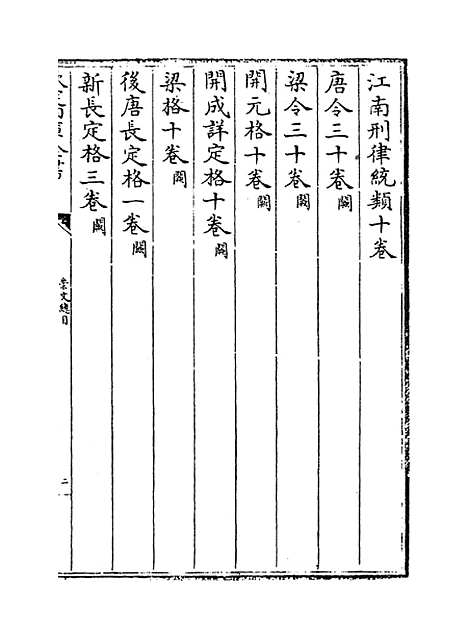 江南刑律統類十卷
唐令三十卷闕
梁令三十卷闕
開元格十卷闕
開成詳定格十卷闕
梁格十卷闕
後唐長定格一卷闕
新長定格三卷闕
崇文總目
二